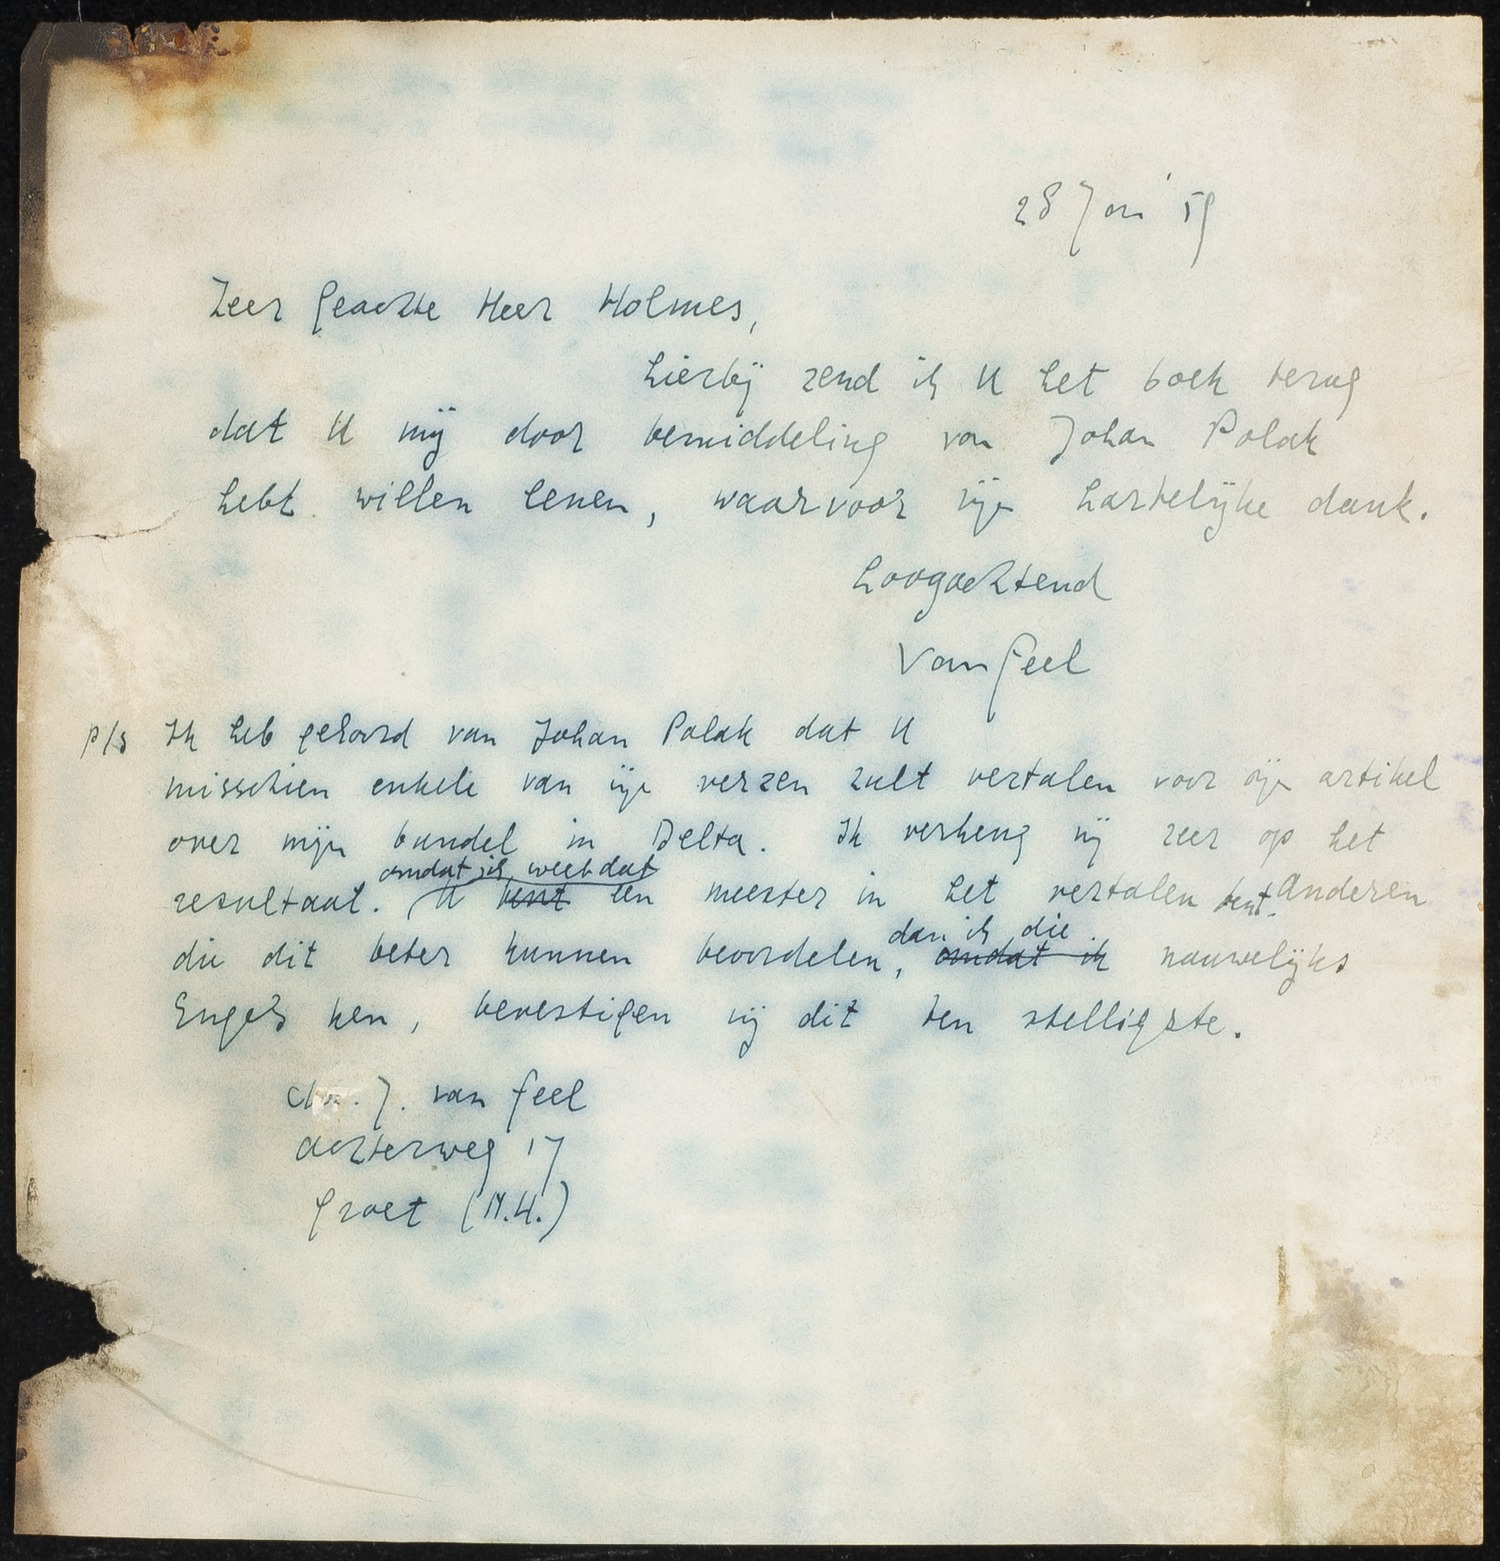 28 Jan '59
Zeer geachte Heer Holmes,
hierbij zend ik U het boek terug
dat U mij door bemiddeling van Johan Polak
hebt willen lenen, waarvoor mijn hartelijke dank.
hoogachtend
Van Geel
P/S Ik heb gehoord van Johan Polak dat U
misschien enkele van mijn verzen zult vertalen voor zijn artikel
over mijn bundel in Delta. Ik verheug mij zeer op het
omdat ik weet dat
resultaat. U bent een meester in het vertalen bent. Anderen
dan ik die
die dit beter kunnen beoordelen, omdat ik nauwelijks
Engels ken, bevestigen mij dit ten stelligste.
Chr. J. van Geel
Achterweg 17
Groet (N.H.)